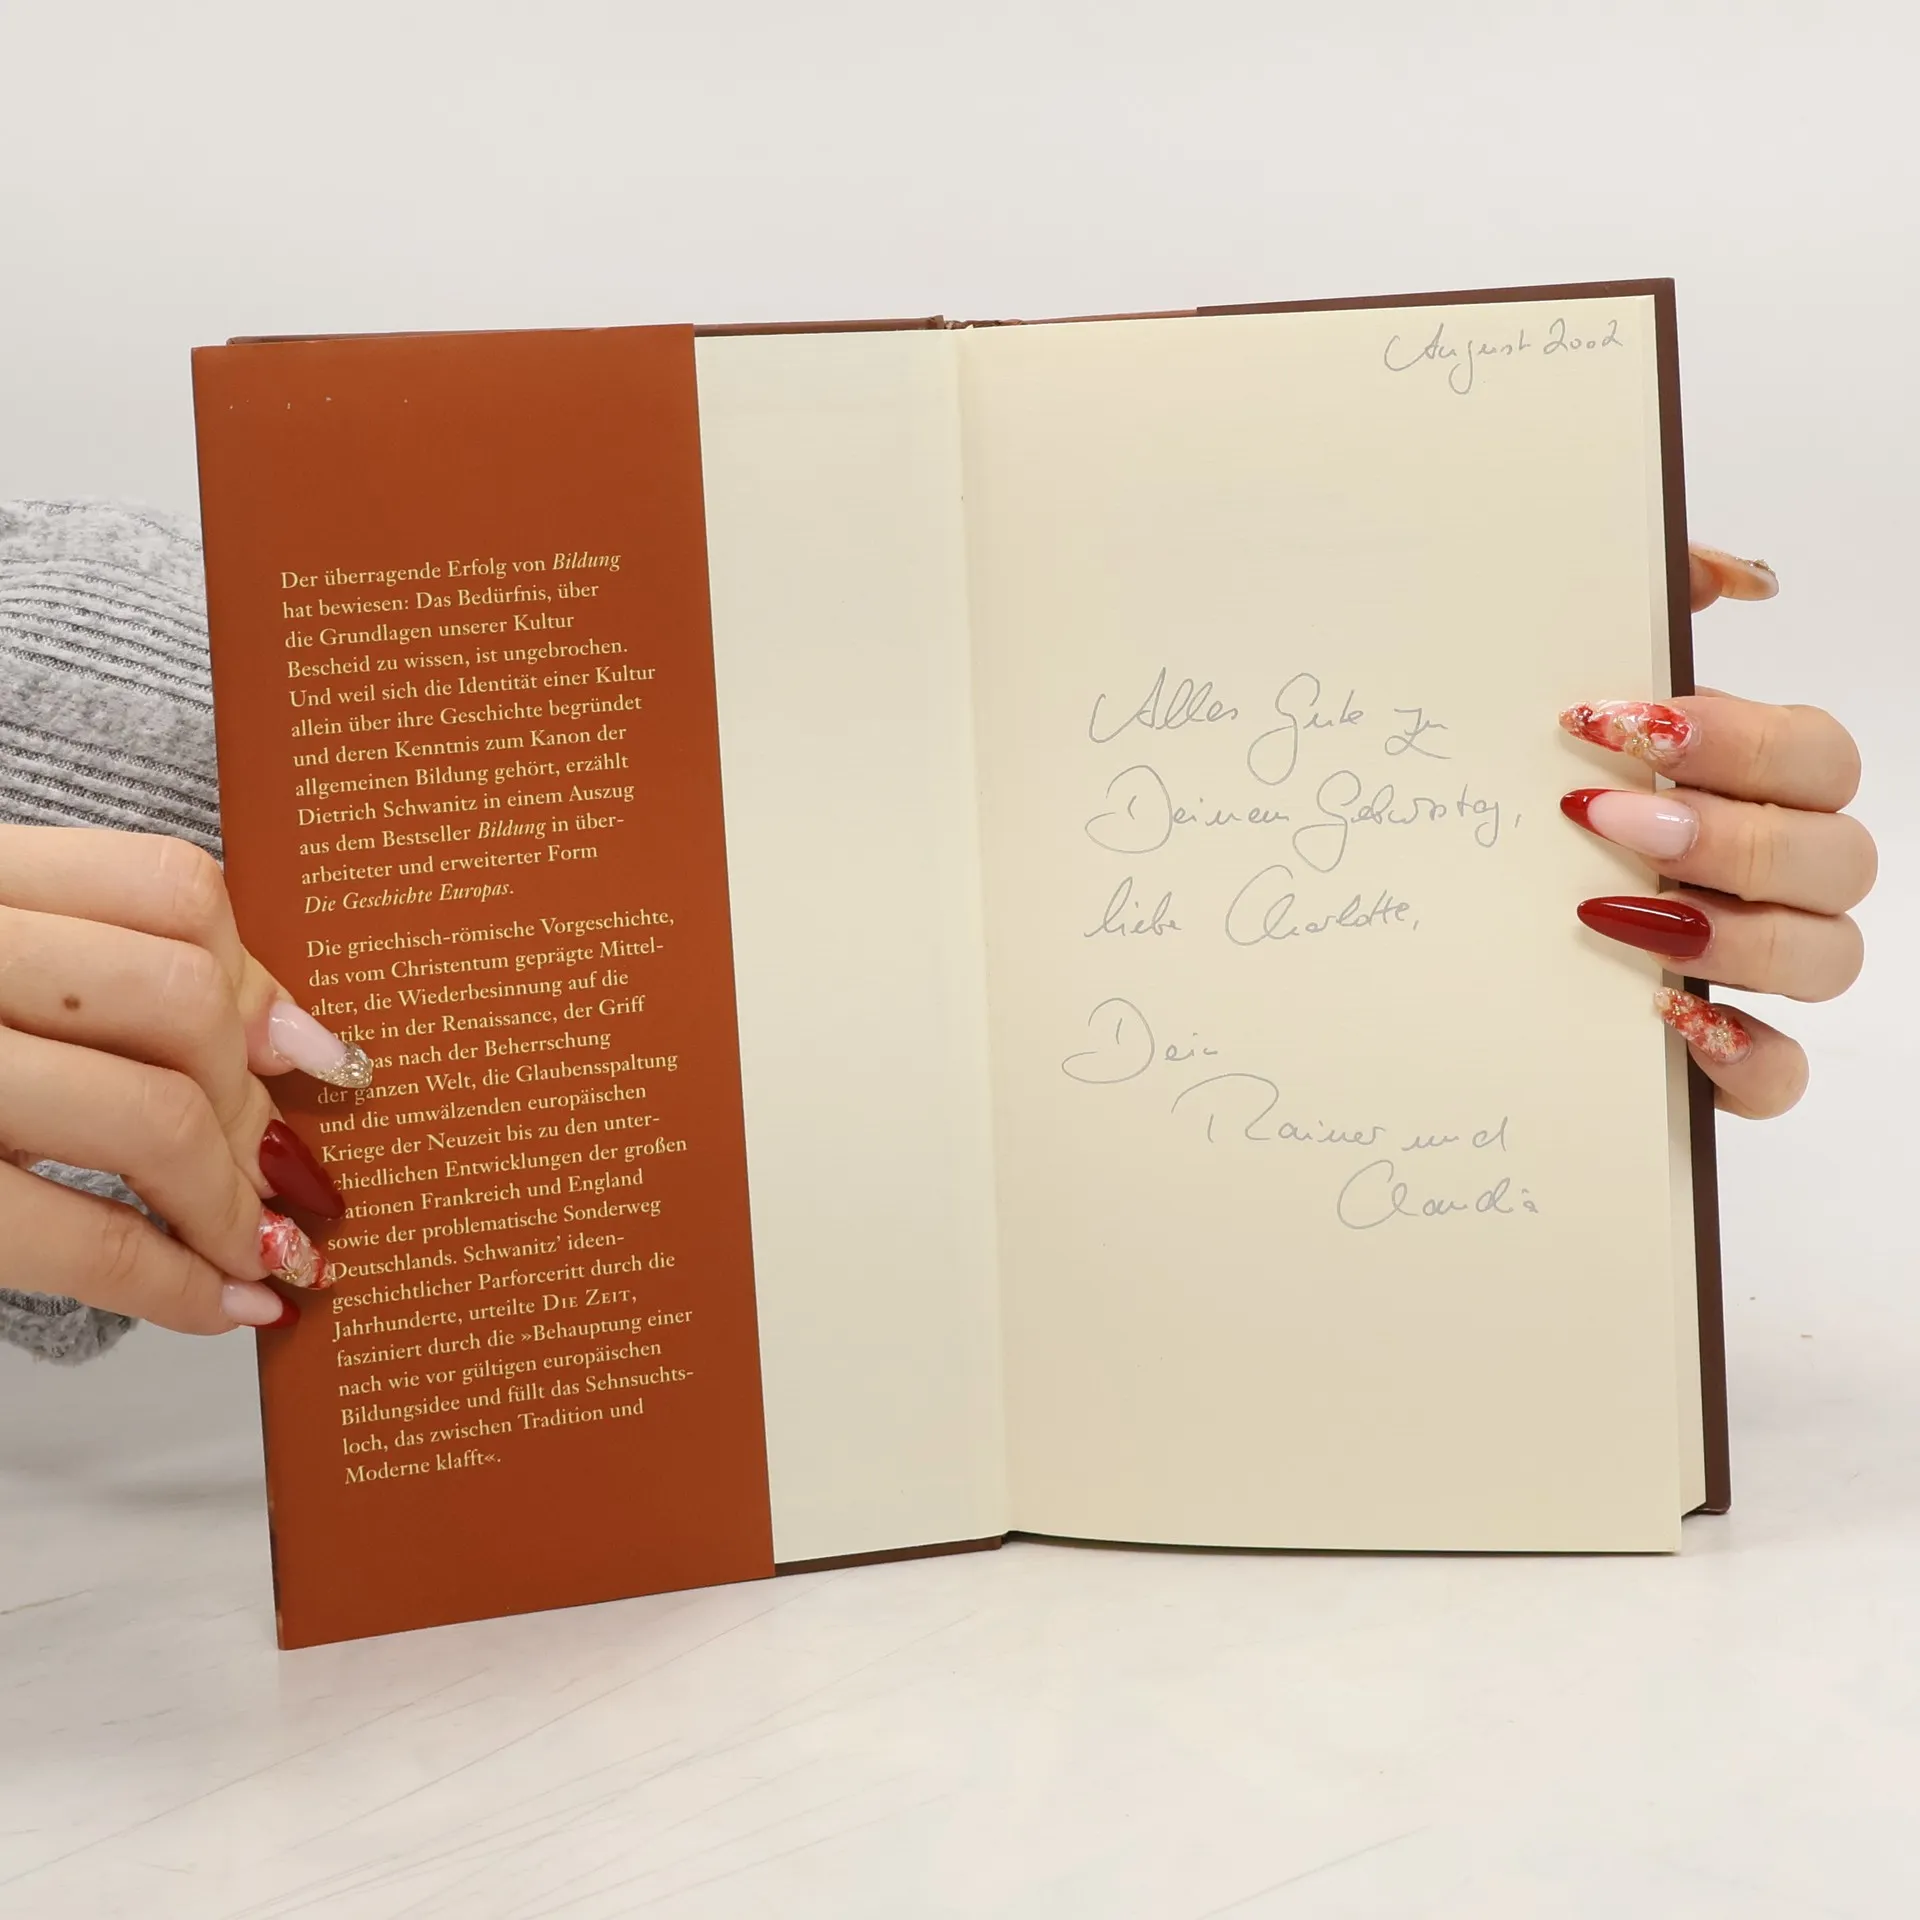 Der überragende Erfolg von Bildung
hat bewiesen: Das Bedürfnis, über
die Grundlagen unserer Kultur
Bescheid zu wissen, ist ungebrochen.
Und weil sich die Identität einer Kultur
allein über ihre Geschichte begründet
und deren Kenntnis zum Kanon der
allgemeinen Bildung gehört, erzählt
Dietrich Schwanitz in einem Auszug
aus dem Bestseller Bildung in über-
arbeiteter und erweiterter Form
Die Geschichte Europas.
Die griechisch-römische Vorgeschichte,
das vom Christentum geprägte Mittel-
alter, die Wiederbesinnung auf die
ntike in der Renaissance, der Griff
pas nach der Beherrschung
der ganzen Welt, die Glaubensspaltung
und die umwälzenden europäischen
Kriege der Neuzeit bis zu den unter-
chiedlichen Entwicklungen der großen
ationen Frankreich und England
sowie der problematische Sonderweg
Deutschlands. Schwanitz' ideen-
geschichtlicher Parforceritt durch die
Jahrhunderte, urteilte DIE ZEIT,
fasziniert durch die »Behauptung einer
nach wie vor gültigen europäischen
Bildungsidee und füllt das Sehnsuchts-
loch, das zwischen Tradition und
Moderne klafft«.
August 2002
Alles Gute zu
Deinem Geburtstag,
liebe Charlotte,
Dein
Rainer und
Claudia